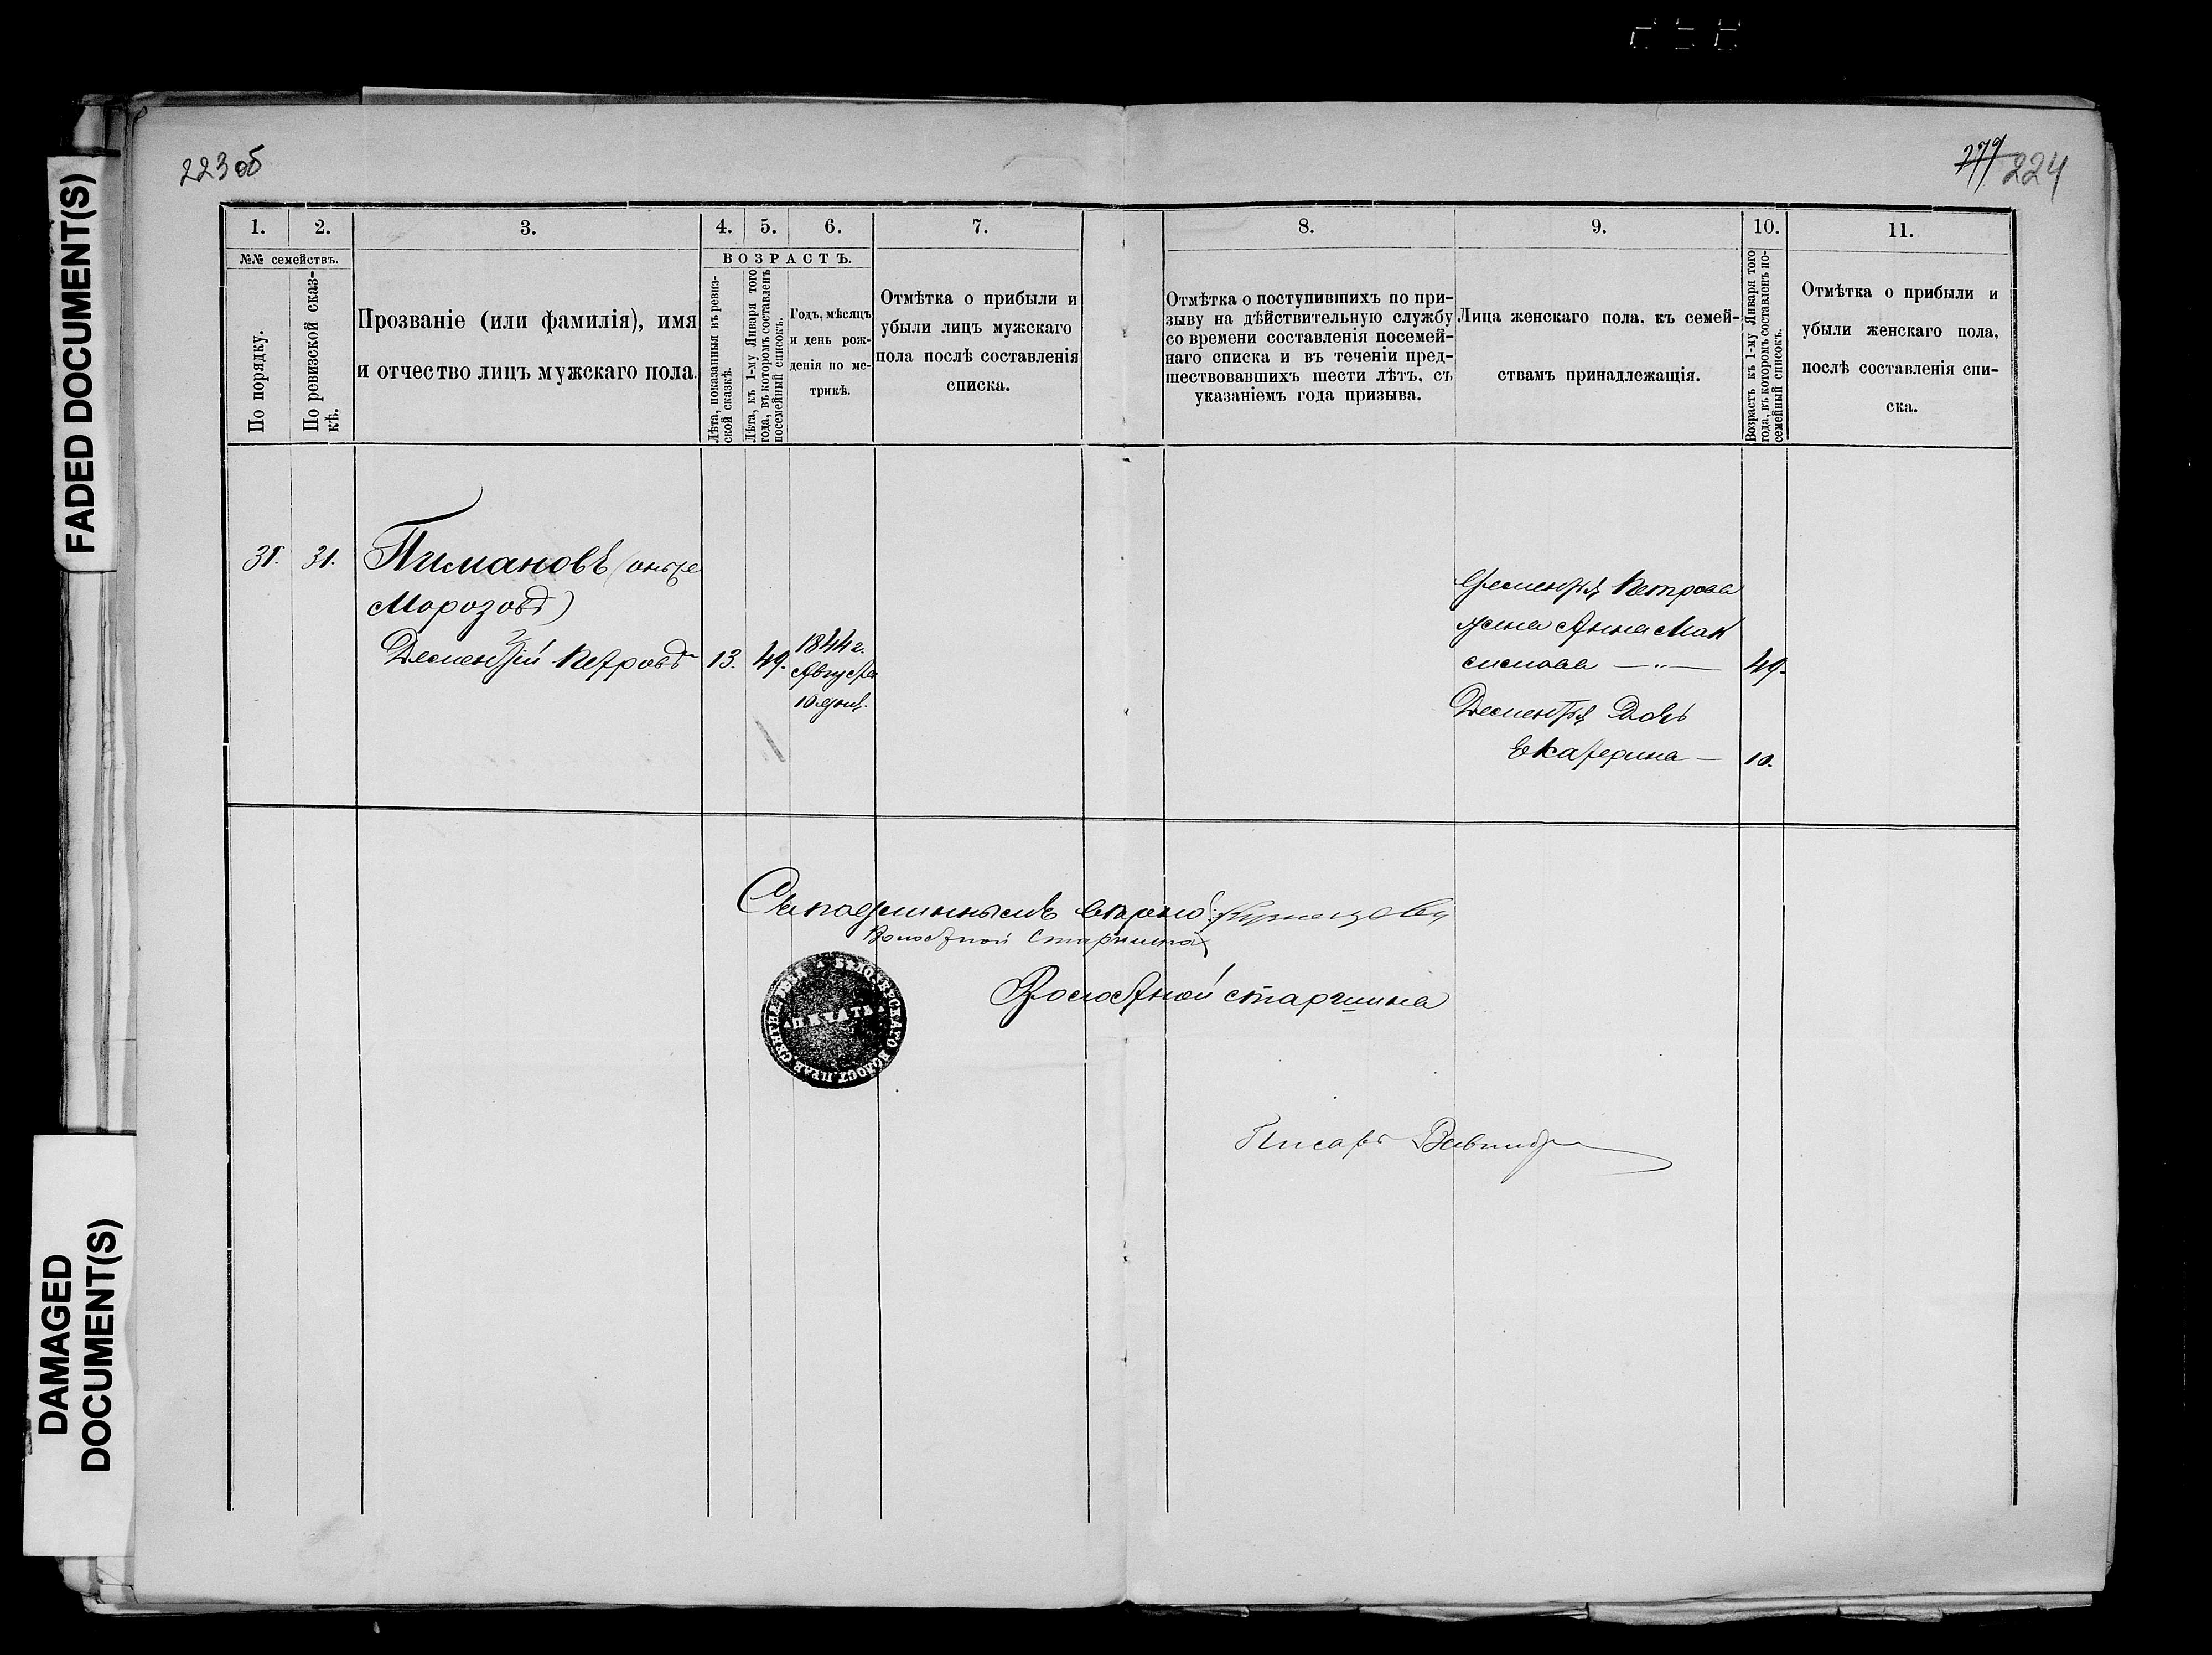 FADED DOCUMENT(S)
DAMAGED
DOCUMENT(S)
223 об
277 224
1.
2.
3.
4.
5.
6.
7.
№№ семействъ.
По порядку.
По ревизской сказ-
кѣ.
Прозваніе (или фамилія), имя
и отчество лицъ мужскаго пола.
ВОЗРАСТЪ.
Лѣта, показанныя въ ревиз-
ской сказкѣ.
Лѣта, къ 1-му Января того
года, въ которомъ составленъ
посемейный списокъ.
Годъ, мѣсяцъ
и день рож-
денія по ме-
трикѣ.
Отмѣтка о прибыли и
убыли лицъ мужскаго
пола послѣ составленія
списка.
8.
9.
10.
11.
Отмѣтка о поступившихъ по при-
зыву на дѣйствительную службу
со времени составленія посемей-
наго списка и въ теченіи пред-
шествовавшихъ шести лѣтъ, съ
указаніемъ года призыва.
Лица женскаго пола, къ семей-
ствамъ принадлежащія.
Возрастъ къ 1-му Января того
года, въ которомъ составленъ по-
семейный списокъ.
Отмѣтка о прибыли и
убыли женскаго пола,
послѣ составленія спи-
ска.
31. 31. Пимановъ (онъ же
Морозовъ)
Дементій Петровъ 13. 49. 1844 г.
Августа
10 дня.
Дементія Петрова
жена Анна Мак
симова — „ — 49.
Дементія дочь
Екатерина — 10.
Съ подлиннымъ вѣрно:
Волостной Старшина
Волостной старшина
БѢЛОЗЕРСКАГО ВОЛОСТ. ПРАВ.
ПЕЧАТЬ
Писарь